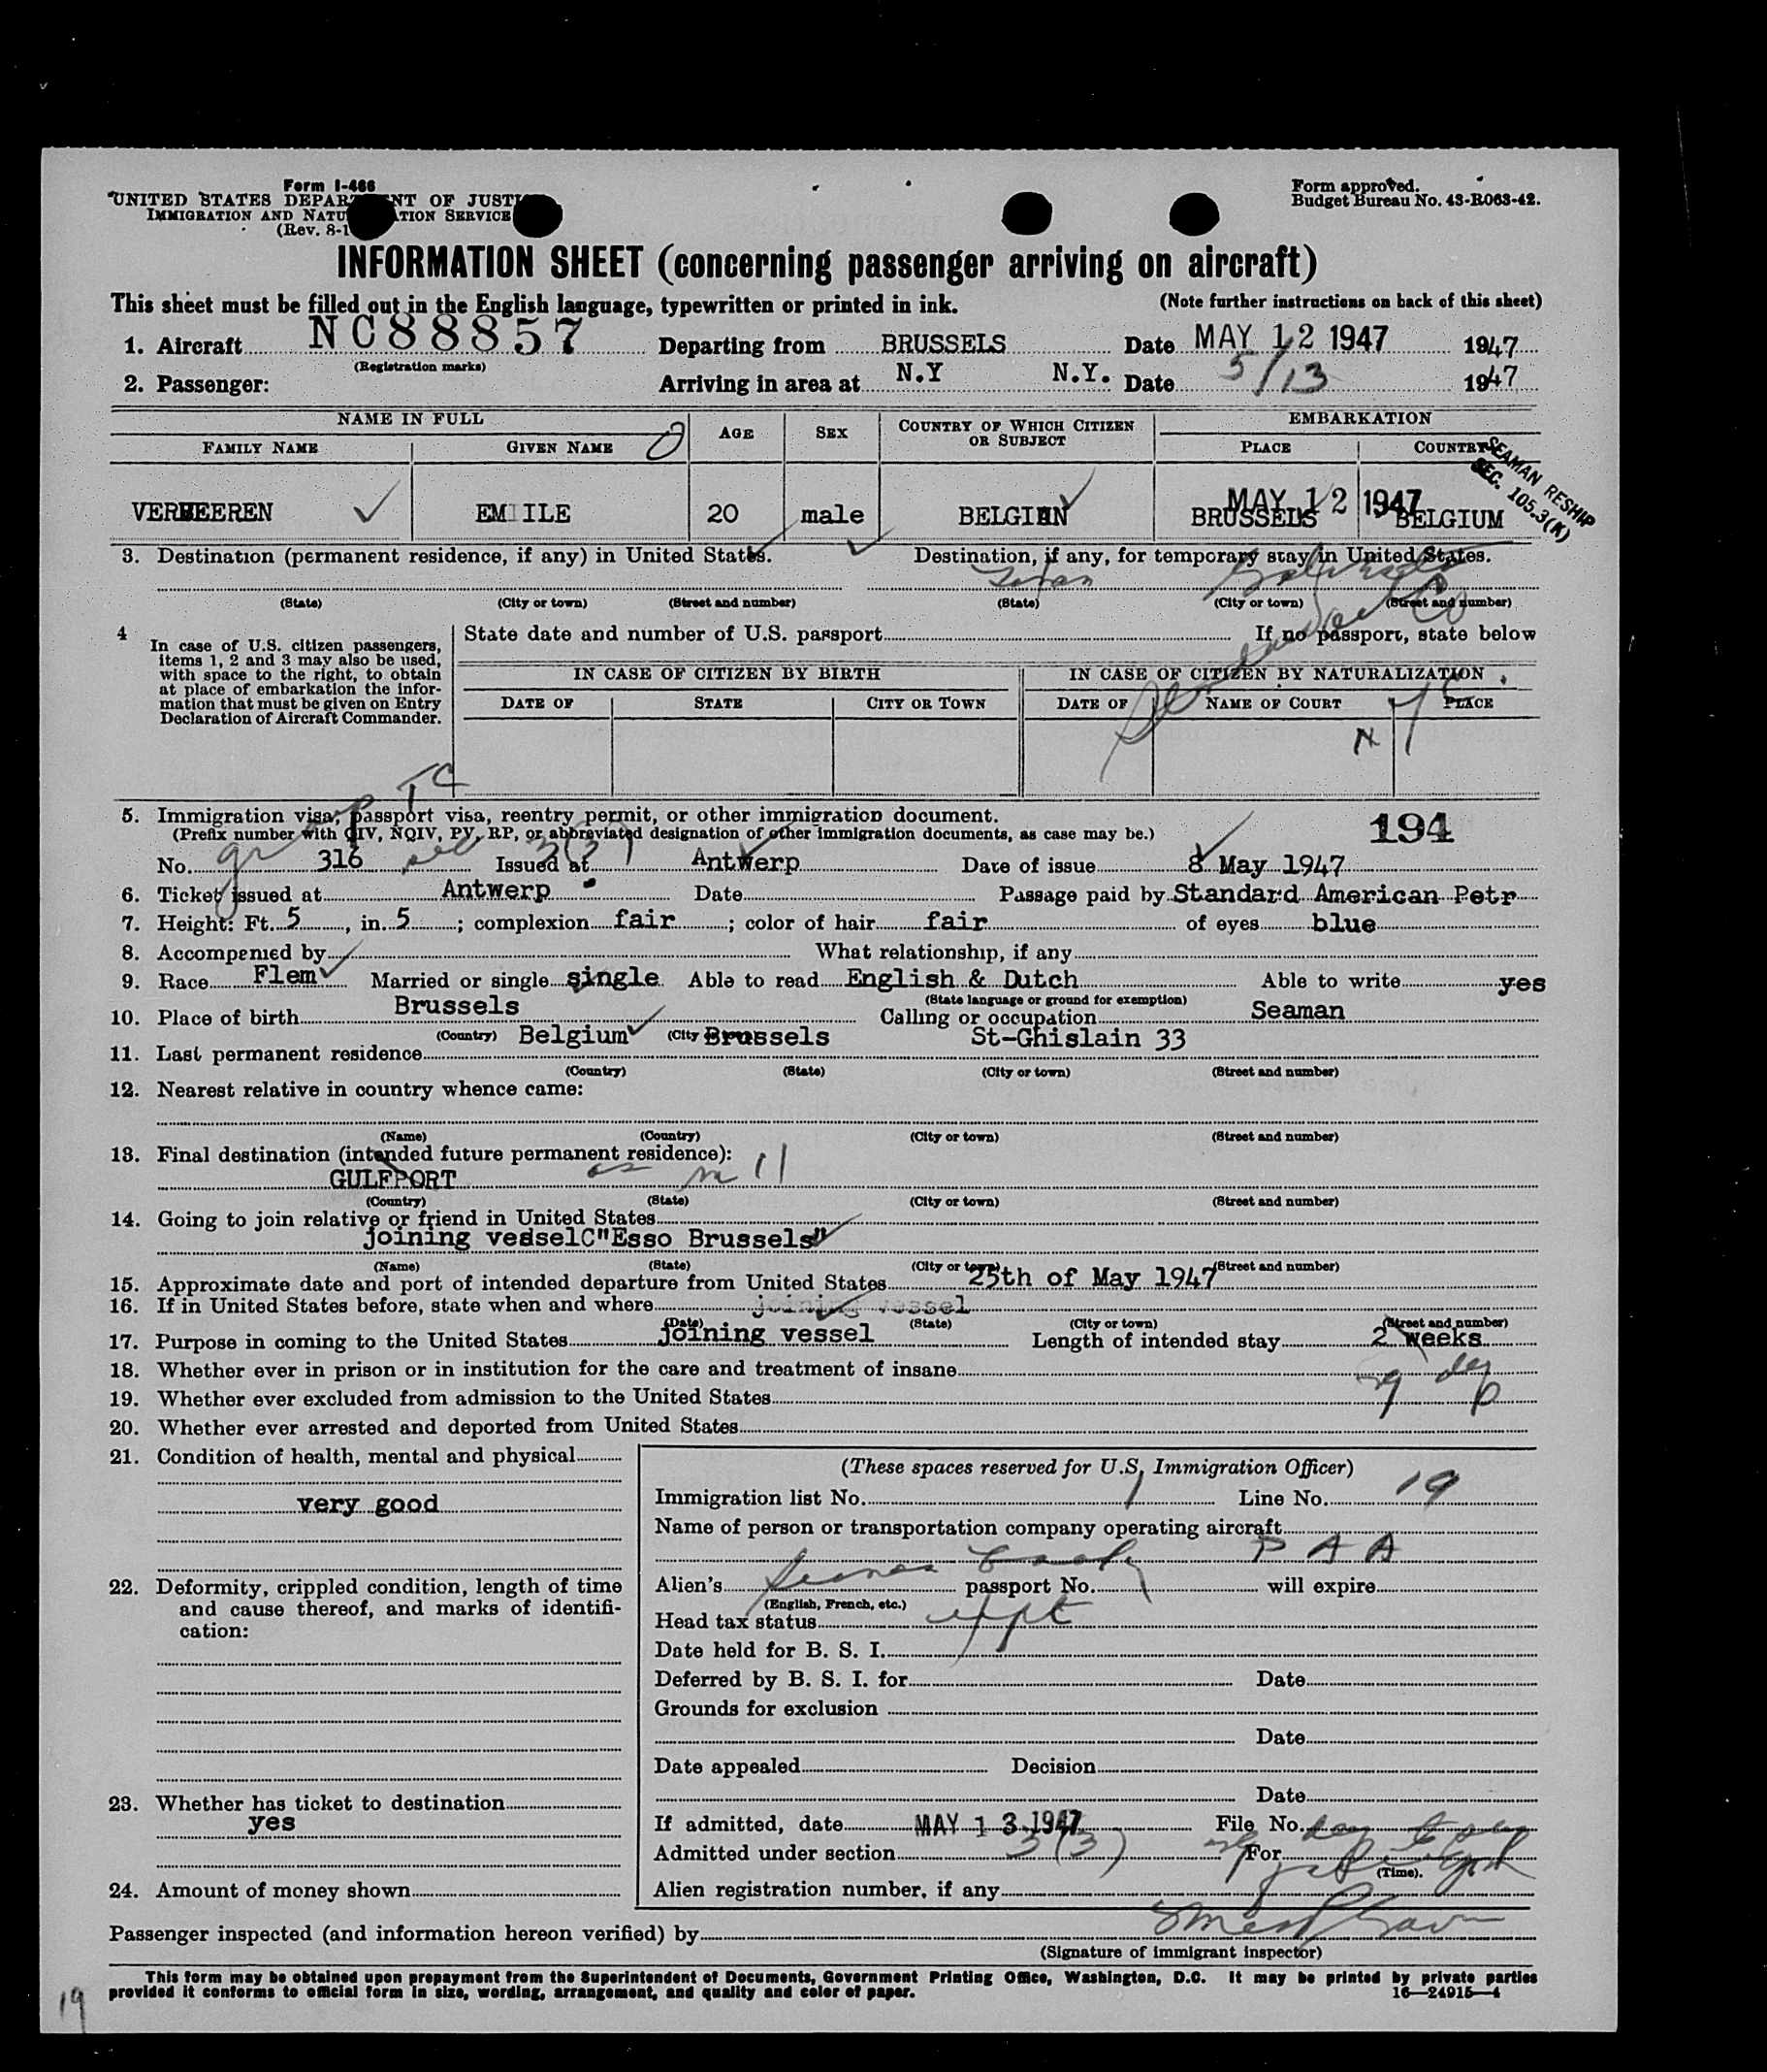 Form I-466
UNITED STATES DEPARTMENT OF JUSTICE
IMMIGRATION AND NATURALIZATION SERVICE
(Rev. 8-1
Form approved.
Budget Bureau No. 43-R063-42.
INFORMATION SHEET (concerning passenger arriving on aircraft)
This sheet must be filled out in the English language, typewritten or printed in ink. (Note further instructions on back of this sheet)
1. Aircraft NC88857 Departing from BRUSSELS Date MAY 12 1947 1947
(Registration marks)
2. Passenger: Arriving in area at N.Y N.Y. Date 5/13 1947
NAME IN FULL AGE SEX COUNTRY OF WHICH CITIZEN OR SUBJECT EMBARKATION
FAMILY NAME GIVEN NAME PLACE COUNTRY
SEAMAN RESHIP
SEC. 105.3(K)
MAY 12 1947
VERHEEREN EMILE 20 male BELGIAN BRUSSELS BELGIUM
3. Destination (permanent residence, if any) in United States. Destination, if any, for temporary stay in United States.
Texas
(State) (City or town) (Street and number) (State) (City or town) (Street and number)
4 In case of U.S. citizen passengers, items 1, 2 and 3 may also be used, with space to the right, to obtain at place of embarkation the information that must be given on Entry Declaration of Aircraft Commander.
State date and number of U.S. passport If no passport, state below
IN CASE OF CITIZEN BY BIRTH IN CASE OF CITIZEN BY NATURALIZATION
DATE OF STATE CITY OR TOWN DATE OF NAME OF COURT PLACE
N Y C
5. Immigration visa, passport visa, reentry permit, or other immigration document.
(Prefix number with QIV, NQIV, PV, RP, or abbreviated designation of other immigration documents, as case may be.) 194
No. 316 3(3) Issued at Antwerp Date of issue 8 May 1947
6. Ticket issued at Antwerp Date Passage paid by Standard American Petr
7. Height: Ft. 5, in. 5; complexion fair; color of hair fair of eyes blue
8. Accompanied by What relationship, if any
9. Race Flem Married or single single Able to read English & Dutch Able to write yes
(State language or ground for exemption)
10. Place of birth Brussels Calling or occupation Seaman
(Country) Belgium (City Brussels St-Ghislain 33
11. Last permanent residence
(Country) (State) (City or town) (Street and number)
12. Nearest relative in country whence came:
(Name) (Country) (City or town) (Street and number)
13. Final destination (intended future permanent residence):
GULFPORT as in 11
(Country) (State) (City or town) (Street and number)
14. Going to join relative or friend in United States
joining vesselC"Esso Brussels"
(Name) (State) (City or town) (Street and number)
15. Approximate date and port of intended departure from United States 25th of May 1947
16. If in United States before, state when and where joining vessel
(Date) (State) (City or town) (Street and number)
17. Purpose in coming to the United States joining vessel Length of intended stay 2 weeks
18. Whether ever in prison or in institution for the care and treatment of insane
19. Whether ever excluded from admission to the United States
20. Whether ever arrested and deported from United States
21. Condition of health, mental and physical
very good
22. Deformity, crippled condition, length of time and cause thereof, and marks of identification:
23. Whether has ticket to destination
yes
24. Amount of money shown
(These spaces reserved for U.S. Immigration Officer)
Immigration list No. 1 Line No. 19
Name of person or transportation company operating aircraft
P A A
Alien's passport No. will expire
(English, French, etc.)
Head tax status
Date held for B. S. I.
Deferred by B. S. I. for Date
Grounds for exclusion
Date
Date appealed Decision
Date
If admitted, date MAY 13 1947 File No.
Admitted under section 3(3) For
(Time).
Alien registration number, if any
Passenger inspected (and information hereon verified) by
(Signature of immigrant inspector)
This form may be obtained upon prepayment from the Superintendent of Documents, Government Printing Office, Washington, D.C. It may be printed by private parties
provided it conforms to official form in size, wording, arrangement, and quality and color of paper. 16—24915-4
19